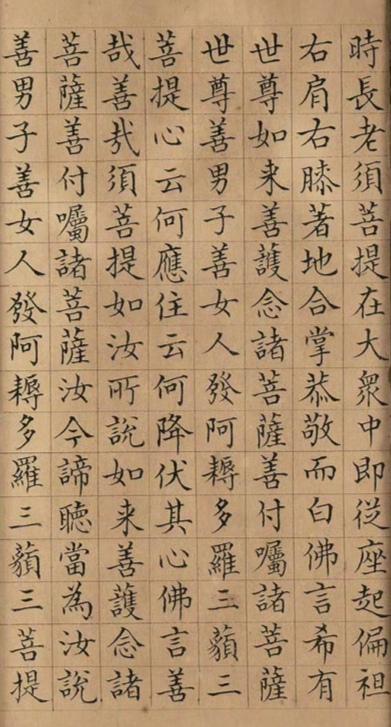 時長老須菩提在大衆中即從座起偏袒
右肩右膝著地合掌恭敬而白佛言希有
世尊如来善護念諸菩薩善付囑諸菩薩
世尊善男子善女人發阿耨多羅三藐三
菩提心云何應住云何降伏其心佛言善
哉善哉須菩提如汝所說如来善護念諸
菩薩善付囑諸菩薩汝今諦聽當為汝說
善男子善女人發阿耨多羅三藐三菩提